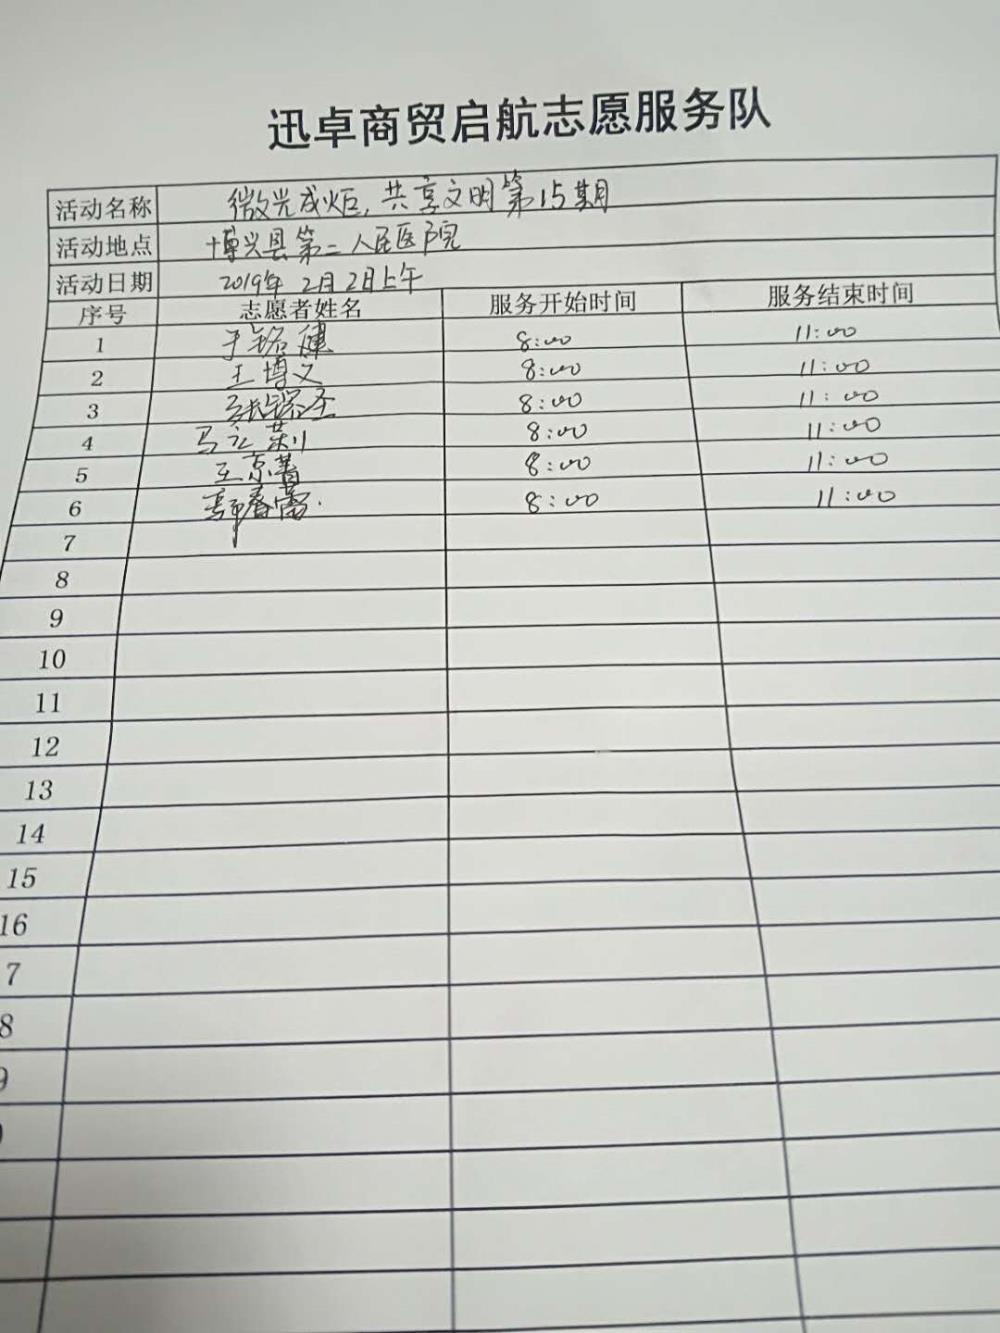 迅卓商贸启航志愿服务队
活动名称 微光成炬,共享文明第15期
活动地点 博兴县第二人民医院
活动日期 2019年2月2日上午
序号 志愿者姓名 服务开始时间 服务结束时间
1 于铭健 8:00 11:00
2 王博义 8:00 11:00
3 8:00 11:00
4 马立荣 8:00 11:00
5 王京普 8:00 11:00
6 郭春雷 8:00 11:00
7
8
9
10
11
12
13
14
15
16
7
8
9